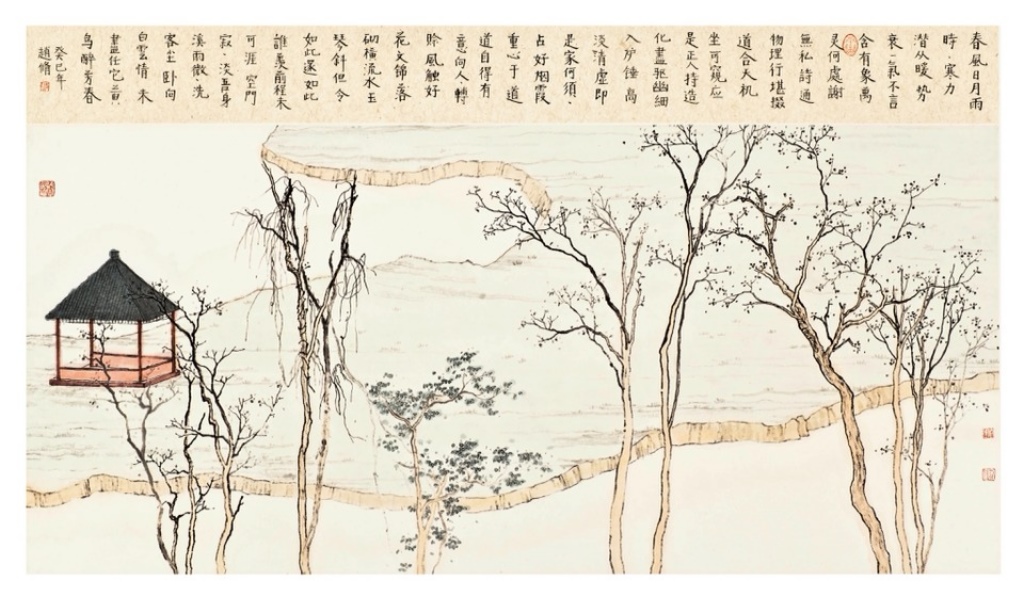 春風日月雨
時·寒力
潛从暖势
衰·氣不言
含有象萬
灵何處謝
無私詩通
物理行堪掇
道合天机
坐可窺应
是正人持造
化盡驱幽细
入炉锤高
淡清虚即
是家何须·
占好烟霞
重心于道
道自得有
意向人·轉
賒風触好
花文锦落
砌横流水玉
琴斜但令
如此還如此
誰羡前程未
可涯空門
寂·淡吾身
溪雨微·洗
客尘卧向
白雲情未
盡任它黄
鸟醉芳春
癸巳年